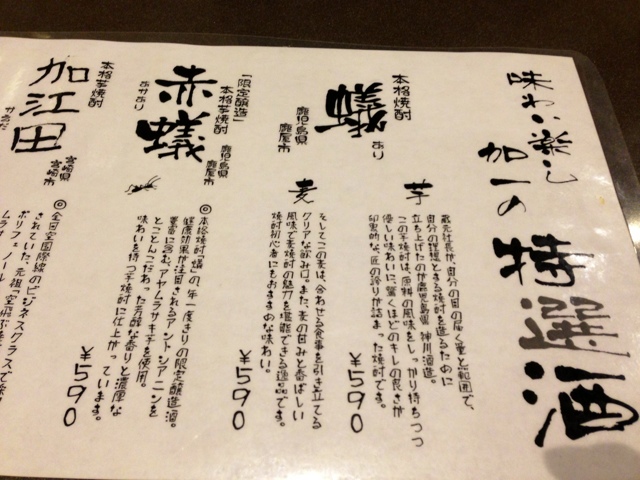 味わい楽しく
加一の特選酒
本格焼酎
蟻
あり
鹿児島県
鹿屋市
芋
蔵元社長が、自分の目の届く量と範囲で、
自分の理想とする焼酎を造るために
立ち上げたのが鹿児島県 神川酒造。
この芋焼酎は、原料の風味をしっかり持ちつつ
優しい味わいに、驚くほどのキレの良さが
印象的な、匠の誇りが詰まった焼酎です。
¥590
麦
そしてこの麦は、合わせる食事を引き立てる
クリアな飲み口。また、麦の甘みと香ばしい
風味で麦焼酎の魅力を堪能できる逸品です。
焼酎初心者にもおすすめな味わい。
¥590
「限定醸造」
本格芋焼酎
鹿児島県
鹿屋市
赤蟻
あかあり
◎本格焼酎「蟻」の、年一度きりの限定醸造酒。
健康効果が注目されるアントシアニンを
豊富に含む、アヤムラサキ芋を使用。
とことんこだわった芳醇な香りと濃厚な
味わいを持つ芋焼酎に仕上がっています。
¥590
本格芋焼酎
加江田
かえだ
宮崎県
宮崎市
◎全日空国際線のビジネスクラスで
されていた、元祖「空飛ぶ
ポリフェノール
ムラサ